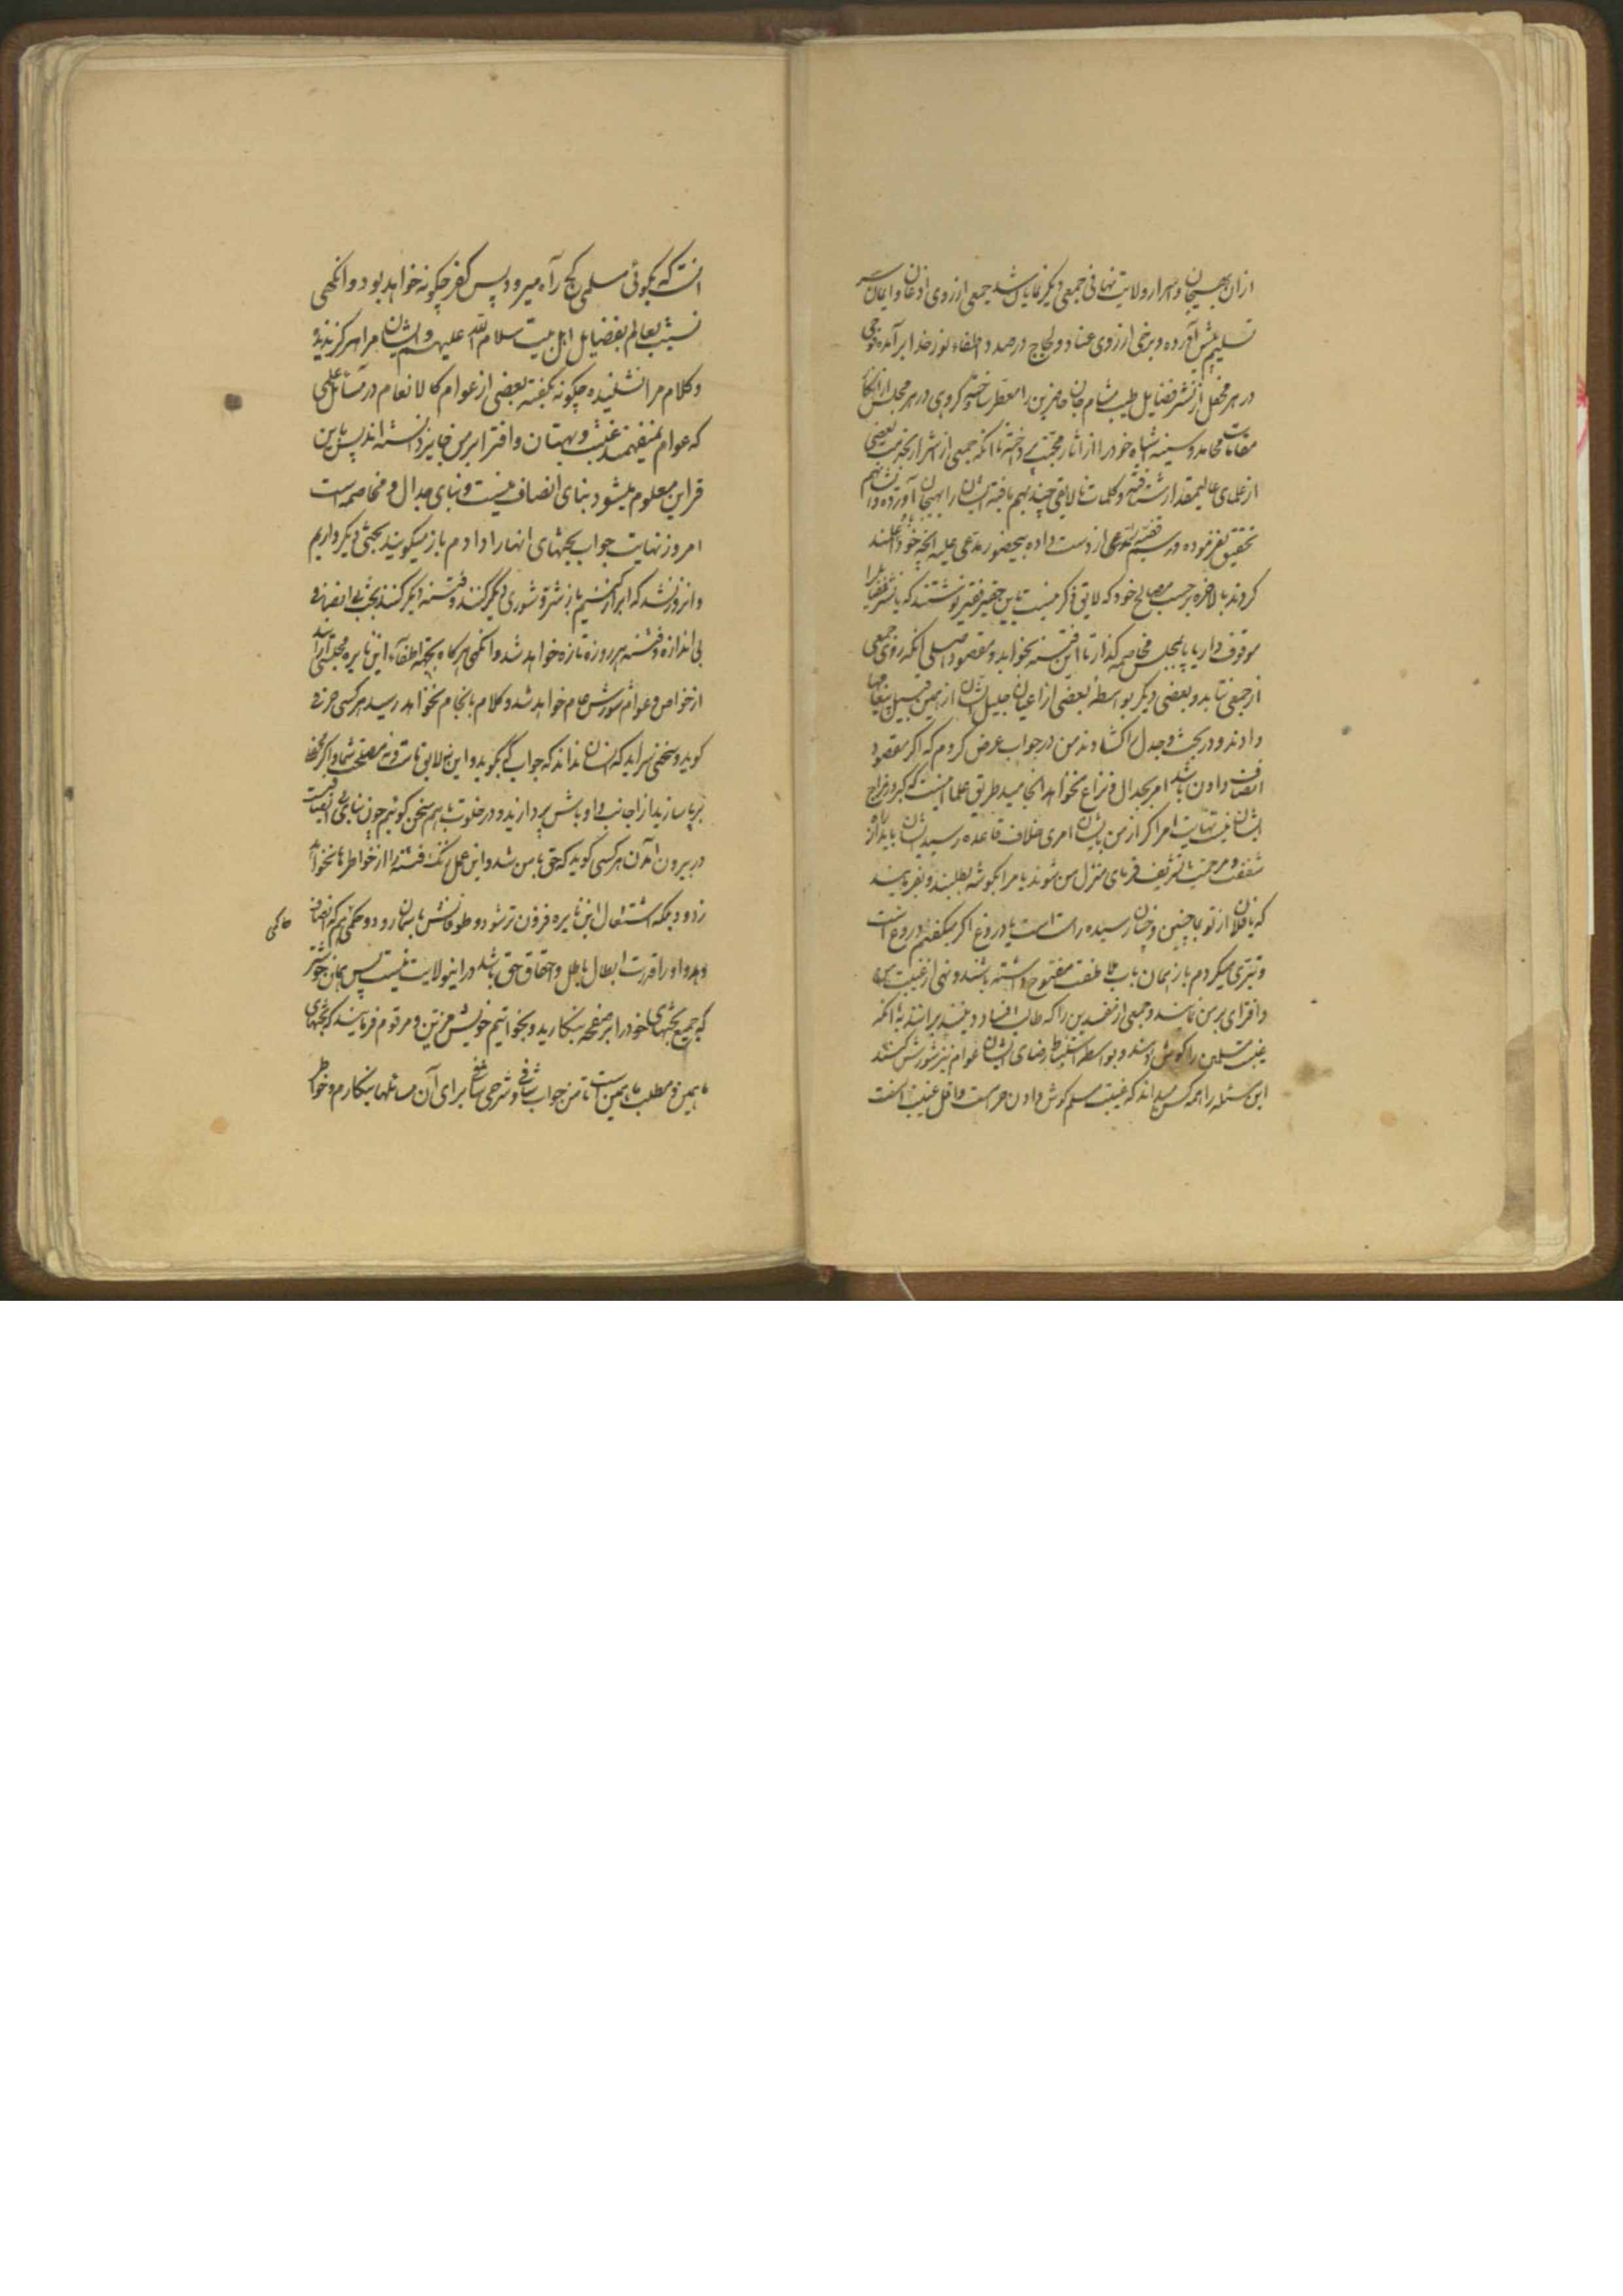 ازان بهیجان و اسرار ولایت نهانی جمعی دیکر نمایان شد جمعی از روی اذعان و ایمان سر
تسلیم پیش آورده و برخی از روی عناد و لجاج درصدد اطفاء نور خدا برآمده جمعی
در هر محفل از نشر فضایل طیب مشام جان حاضرین را معطر ساخته و کروهی در هر مجلس از انکار
مقامات محامد و سینه سیاه خود را از آثار محبت پرداخته تا انکه جمعی از اشرار بخدمت بعضی
از علمای عالیمقدار شتافته و کلمات نالایقی چند بهم بافته ایشان را بهیجان آورده و ایشان هم
تحقیق نفرموده و سر قضیه از دست داده بیحضور مدعی علیه انچه خود دانند
کردند بالاخره برحسب مصالح خود که لایق ذکر نیست باین حقیر فقیر نوشتند که یا نشر فضایل را
موقوف دار یا پا بمجلس مخاصمه کذار تا این فتنه بخوابد و مقصود اصلی انکه روی جمعی
از جمعی نتابد و بعضی دیکر بواسطه بعضی از اعیان جلیل الشان از همین قبیل پیغامها
دادند و در بحث و جدل را کشادند من در جواب عرض کردم که اکر مقصود
انصاف دادن باشد امر بجدال و نزاع نخواهد انجامید طریق علما اینست که کبر در مزاج
ایشان نیست نهایت امر اکر از من بایشان امری خلاف قاعده رسید ایشان باید از راه
شفقت و مرحمت تشریف فرمای منزل من شوند یا مرا بکوشه بطلبند و بفرمایند
که یا فلان از تو بما چنین و چنان رسیده راست است یا دروغ اکر میکفتم دروغ است
و تبری میکردم باز همان باب ملاطفت مفتوح داشته باشند و نهی از غیبت من
و افترای بر من نمایند و جمعی از مفسدین را که طالب فساد دینند برانند نه انکه
غیبت مسلمین را کوش دهند و بواسطه استنباط رضای ایشان عوام نیز شورش کنند
این مسئله را همه کس میداند که غیبت مسلم کوش دادن حرامست و اقل غیبت انست
انست که بکوئی مسلمی کج راه میرود پس کفر چکونه خواهد بود وانکهی
نسبت بعالم بفضایل اهل بیت سلام الله علیهم و ایشان مرا هرکز ندیده
و کلام مرا نشنیده چکونه بکفته بعضی از عوام کالانعام در مسائل علمی
که عوام نمیفهمند غیبت و بهتان و افترا بر من جایز دانسته اند پس باین
قراین معلوم میشود بنای انصاف نیست و بنای جدال و مخاصمه است
امروز نهایت جواب بحثهای انها را دادم باز میکویند بحثی دیکر داریم
و انروز نشد که ابراز کنیم باز شر و شوری دیکر کنند و فتنه دیکر کنند بحث بی انصاف
بی اندازه و فتنه هر روزه تازه خواهد شد وانکهی هرکاه بجهة اطفاء این نایره مجلسی آراید
از خواص و عوام شورش عام خواهد شد و کلام بانجام نخواهد رسید هر کسی حرفی
کوید و سخنی سراید که انسان نداند که جواب که بکوید و این نه لایق ماست و نه مصلحت شما و اکر محفل
برپا سازید از اجانب و اوباش بپردازید و در خلوت باهم سخن کوئیم چون بنا بی انصافیست
در بیرون آمدن هر کسی کوید که حق با من شد و این عمل زنک فتنه را از خواطر ها نخواهد
زدود بلکه اشتعال این نایره فزون تر شود و طوفانش باسمان رود و حکمی هم که انصاف
دهد و او را قدرت ابطال باطل و احقاق حق باشد در اینولایت نیست پس همان خوشتر
که جمیع بحثهای خود را بر صفحه بنکارید و بخواتیم خویش مزین و مرقوم فرمایند که بحثهای
ما همین و مطلب ما همین است تا من جواب شافی و شرحی برای آن مسائلها بنکارم و خواطر